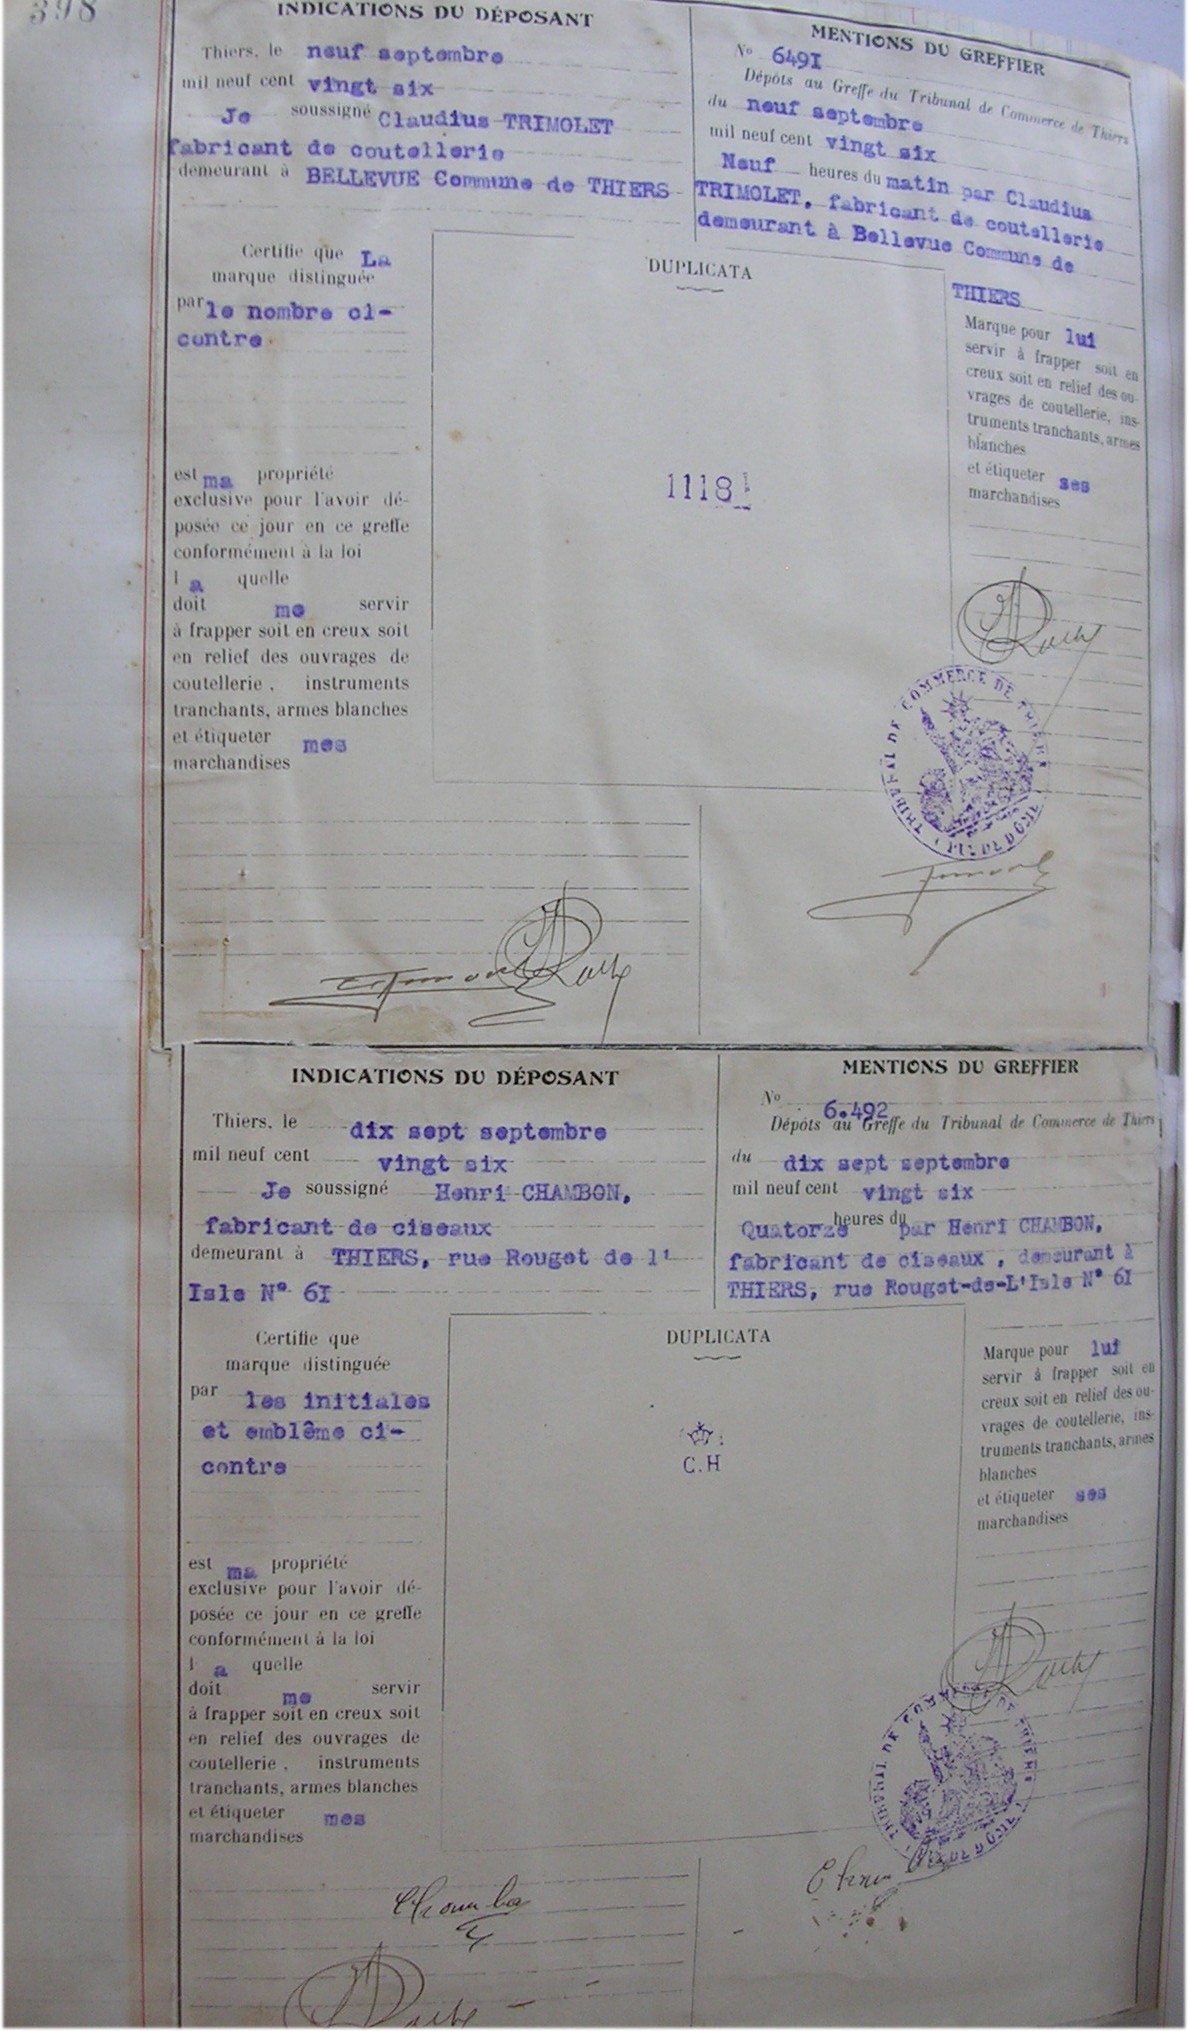 398
INDICATIONS DU DÉPOSANT
Thiers, le neuf septembre
mil neuf cent vingt six
Je soussigné Claudius TRIMOLET
fabricant de coutellerie
demeurant à BELLEVUE Commune de THIERS
MENTIONS DU GREFFIER
No 649I
Dépôts au Greffe du Tribunal de Commerce de Thiers
du neuf septembre
mil neuf cent vingt six
Neuf heures du matin par Claudius
TRIMOLET, fabricant de coutellerie
demeurant à Bellevue Commune de
THIERS
Certifie que La
marque distinguée
par le nombre ci-
contre
est ma propriété
exclusive pour l'avoir dé-
posée ce jour en ce greffe
conformément à la loi
l a quelle
doit me servir
à frapper soit en creux soit
en relief des ouvrages de
coutellerie, instruments
tranchants, armes blanches
et étiqueter mes
marchandises
DUPLICATA
1118
Marque pour lui
servir à frapper soit en
creux soit en relief des ou-
vrages de coutellerie, ins-
truments tranchants, armes
blanches
et étiqueter ses
marchandises
TRIBUNAL DE COMMERCE DE THIERS
PUY DE DÔME
INDICATIONS DU DÉPOSANT
Thiers, le dix sept septembre
mil neuf cent vingt six
Je soussigné Henri CHAMBON,
fabricant de ciseaux
demeurant à THIERS, rue Rouget de l'
Isle N° 6I
MENTIONS DU GREFFIER
No 6.492
Dépôts au Greffe du Tribunal de Commerce de Thiers
du dix sept septembre
mil neuf cent vingt six
Quatorze heures du par Henri CHAMBON,
fabricant de ciseaux, demeurant à
THIERS, rue Rouget-de-L'Isle N° 6I
Certifie que
marque distinguée
par les initiales
et emblême ci-
contre
est ma propriété
exclusive pour l'avoir dé-
posée ce jour en ce greffe
conformément à la loi
l a quelle
doit me servir
à frapper soit en creux soit
en relief des ouvrages de
coutellerie, instruments
tranchants, armes blanches
et étiqueter mes
marchandises
DUPLICATA
C.H
Marque pour lui
servir à frapper soit en
creux soit en relief des ou-
vrages de coutellerie, ins-
truments tranchants, armes
blanches
et étiqueter ses
marchandises
TRIBUNAL DE COMMERCE DE THIERS
PUY DE DÔME